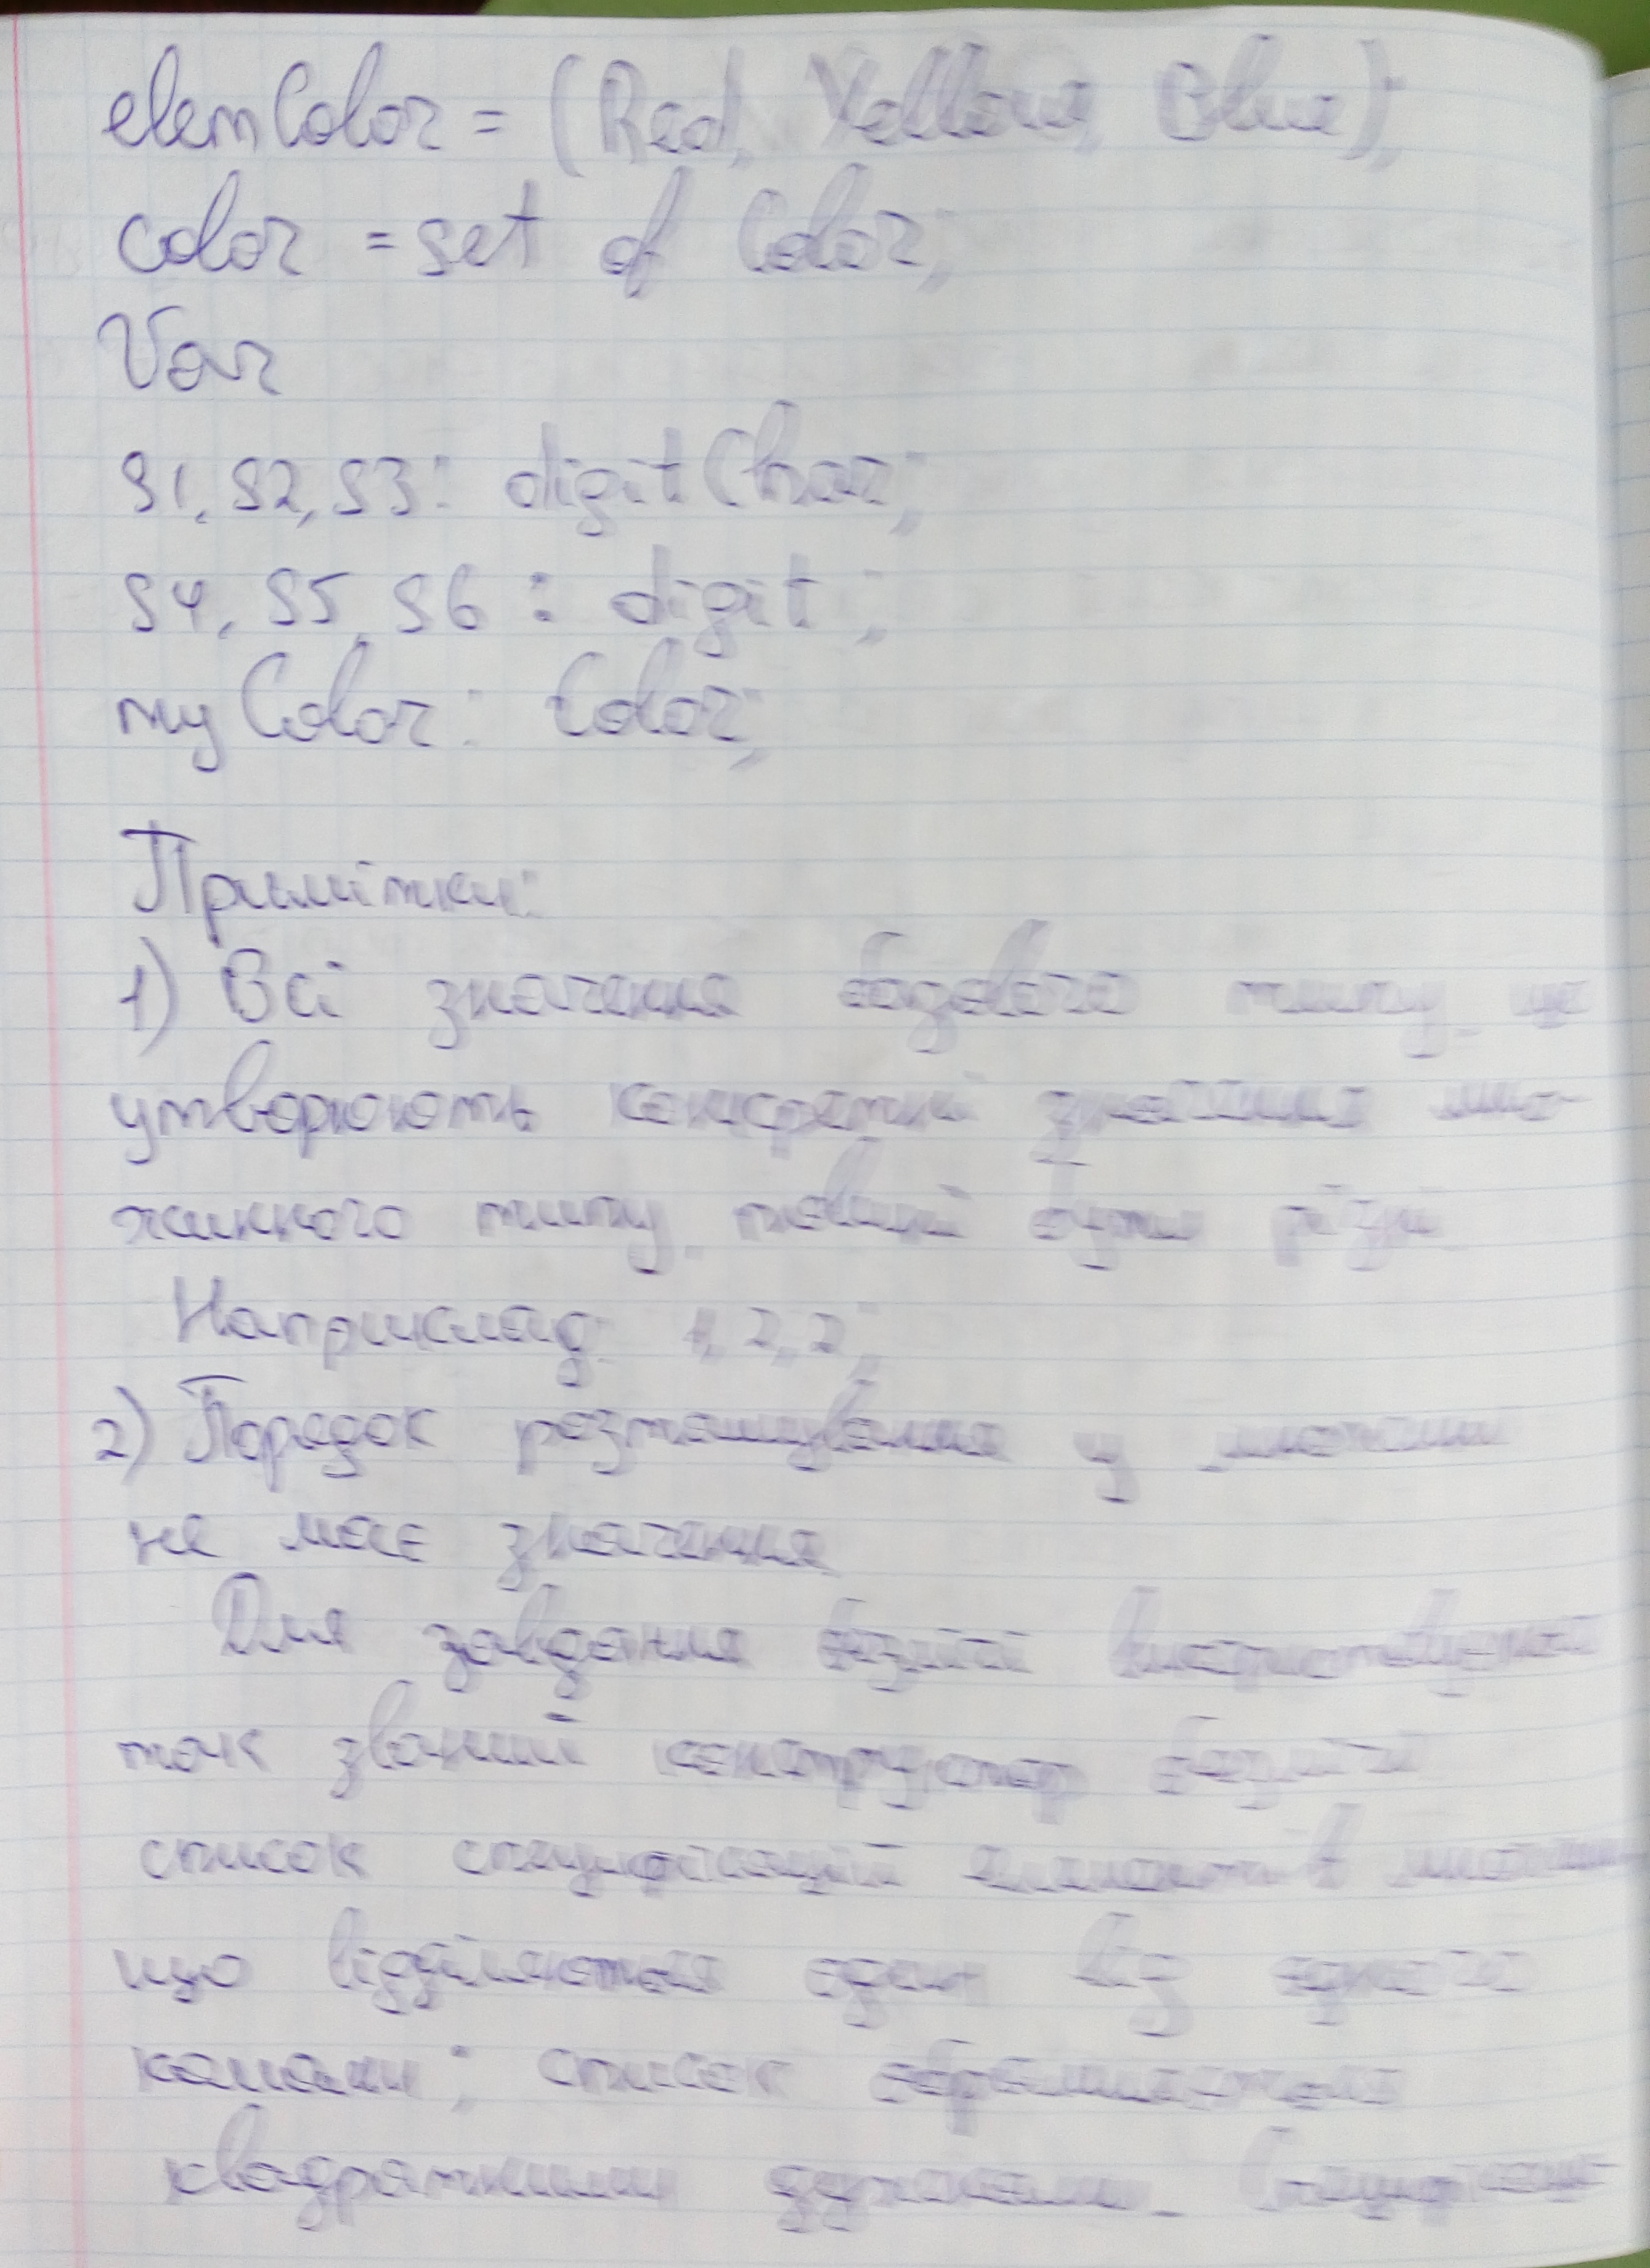 elemColor = (Red, Yellow, Blue);
color = set of Color;
Var
S1, S2, S3: digitChar;
S4, S5, S6 : digit ;
myColor: Color;
Примітки:
1) Всі значення базового типу, що
утворюють конкретні значення мно-
жинного типу, повинні бути різні
Наприклад: 1, 2, 2;
2) Порядок розташування у множині
не має значення
Для завдання безлічі використовується
так званий конструктор безлічі
список специфікацій елементів множини
що відділяються один від одного
комами; список обрамляється
квадратними дужками.